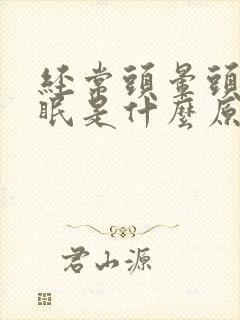 經常頭暈頭
眠是什麼原
君山源